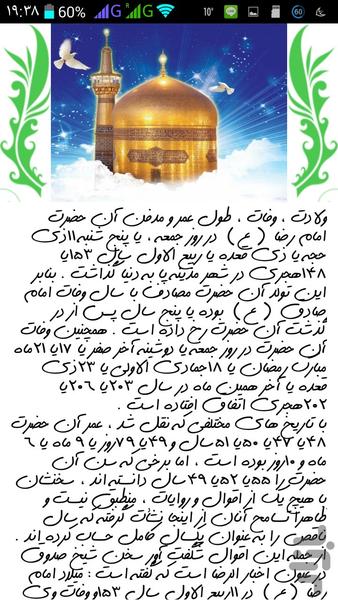 ۱۹:۳۸ 60% G R G 10° 60
ولادت ، وفات ، طول عمر و مدفن آن حضرت
امام رضا ( ع ) در روز جمعه ، یا پنج شنبه ۱۱ذی
حجه یا ذی قعده یا ربیع الاول سال ۱۵۳یا
۱۴۸هجری در شهر مدینه پا به دنیا گذاشت . بنابر
این تولد آن حضرت مصادف با سال وفات امام
صادق ( ع ) بوده یا پنج سال پس از در
گذشت آن حضرت رخ داده است . همچنین وفات
آن حضرت در روز جمعه یا دوشنبه آخر صفر یا ۱۷یا ۲۱ماه
مبارک رمضان یا ۱۸جمادی الاولی یا ۲۳ذی
قعده یا آخر همین ماه در سال ۲۰۳یا ۲۰۶یا
۲۰۲هجری اتفاق افتاده است .
با تاریخ های مختلفی که نقل شد ، عمر آن حضرت
۴۸یا ۴۷یا ۵۰یا ۵۱سال و ۴۹یا ۷۹روز یا ۹ ماه یا ۶
ماه و ۱۰روز بوده است ، اما برخی که سن آن
حضرت را ۵۵یا ۵۲یا ۴۹ سال دانسته اند ، سخنشان
با هیچ یک از اقوال و روایات ، منطبق نیست و
ظاهرا تسامح آنان از اینجا نشات گرفته که سال
ناقص را به عنوان یکسال کامل حساب کرده اند .
از جمله این اقوال شگفت آور سخن شیخ صدوق
در عیون اخبار الرضا است که گفته است : میلاد امام
رضا ( ع ) در ۱۱ربیع الاول سال ۱۵۳و وفات وی